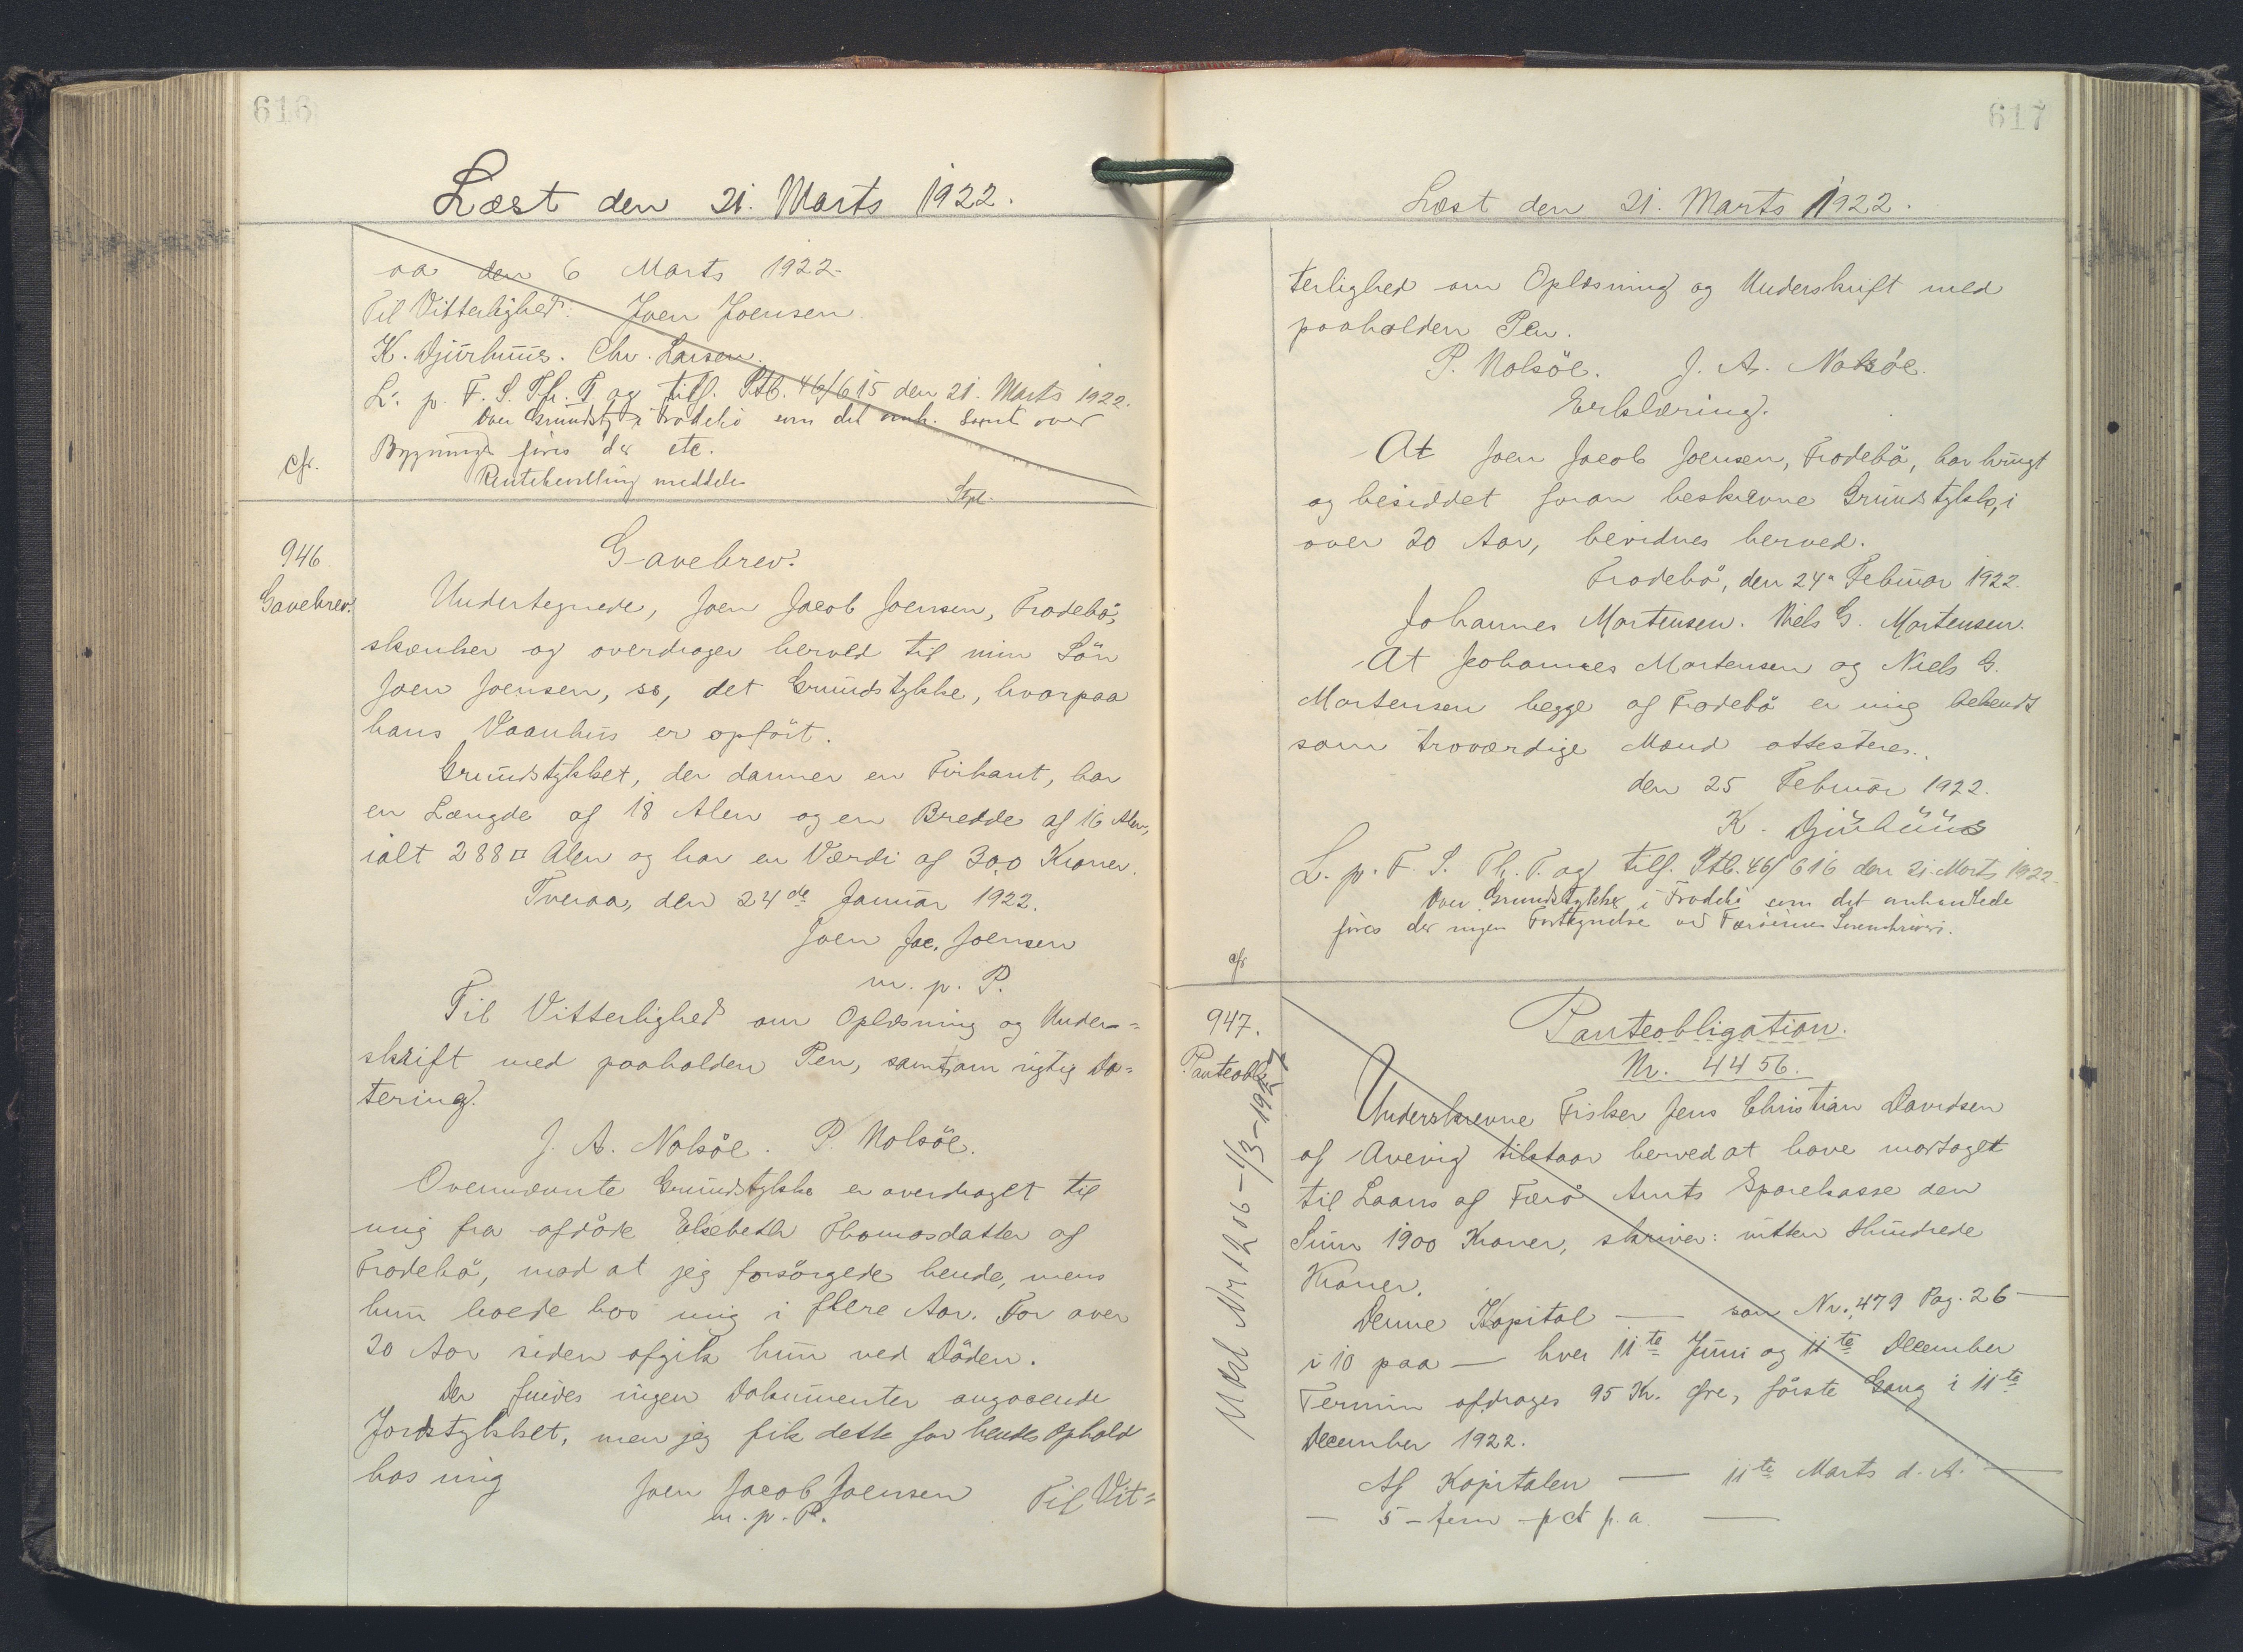 616
Læst den 21. Marts 1922.
aa den 6 Marts 1922-
Til Vitterlighed: Joen Joensen
K. Djurhuus. Chr. Larsen.
L. p. F. S. Th. T. og tilf. Ptb. 46/615 den 21. Marts 1922.
Over Grundst. i Frodebö som det omh. samt over
cfr. Bygninge föres der etc.
meddeles
Stpl.
946
Gavebrev.
Gavebrev.
Undertegnede, Joen Jacob Joensen, Frodebö,
skænker og overdrager herved til min Sön
Joen Joensen, ss, det Grundstykke, hvorpaa
hans Vaanhus er opfört.
Grundstykket, der danner en Firkant, har
en Længde af 18 Alen og en Bredde af 16 Alen,
ialt 288 □ Alen og har en Værdi af 300 Kroner.
Tveraa, den 24de Januar 1922.
Joen Jac. Joensen
m. p. P.
Til Vitterlighed om Oplæsning og Under=
skrift med paaholden Pen, samt om rigtig Da=
tering.
J. A. Nolsöe. P. Nolsöe.
Ovennævnte Grundstykke er overdraget til
mig fra afdöde Elsebeth Thomasdatter af
Frodebö, mod at jeg forsörgede hende, mens
hun boede hos mig i flere Aar. For over
20 Aar siden afgik hun ved Döden.
Der findes ingen Dokumenter angaaende
Jordstykket, men jeg fik dette for hendes Ophold
hos mig
Joen Jacob Joensen Til Vit=
m. p. P.
617
Læst den 21. Marts 1922.
terlighed om Oplæsning og Underskrift med
paaholden Pen.
P. Nolsöe. J. A. Nolsöe.
Erklæring.
At Joen Jacob Joensen, Frodebö, har brugt
og besiddet foran beskrevne Grundstykke, i
over 20 Aar, bevidnes herved.
Frodebö, den 24. Februar 1922.
Johannes Mortensen. Niels G. Mortensen.
At Johannes Mortensen og Niels G.
Mortensen begge af Frodebö er mig bekendt
som troværdige Mænd attesteres.
den 25 Februar 1922.
K. Djurhuus
L. p. F. S. Th. T. og tilf. Ptb. 46/616 den 21. Marts 1922-
Over Grundstykke i Frodebö som det omhandlede
föres der ingen Fortegnelse ved Færöernes Sorenskriveri.
cfr
947.
Panteobl.
Panteobligation.
Nr. 4456.
Underskrevne Fisker Jens Christian Davidsen
af Avevig tilstaar herved at have modtaget
til Laans af Færö Amts Sparekasse den
Sum 1900 Kroner, skriver: nitten Hundrede
Kroner.
Denne Kapital — som Nr. 479 Pag. 26 —
i 10 paa — hver 11te Juni og 11te December
Termin afdrages 95 Kr. Öre, förste Gang i 11te
December 1922.
Af Kapitalen — 11te Marts d. A. —
— 5 – fem – pct p. a. —